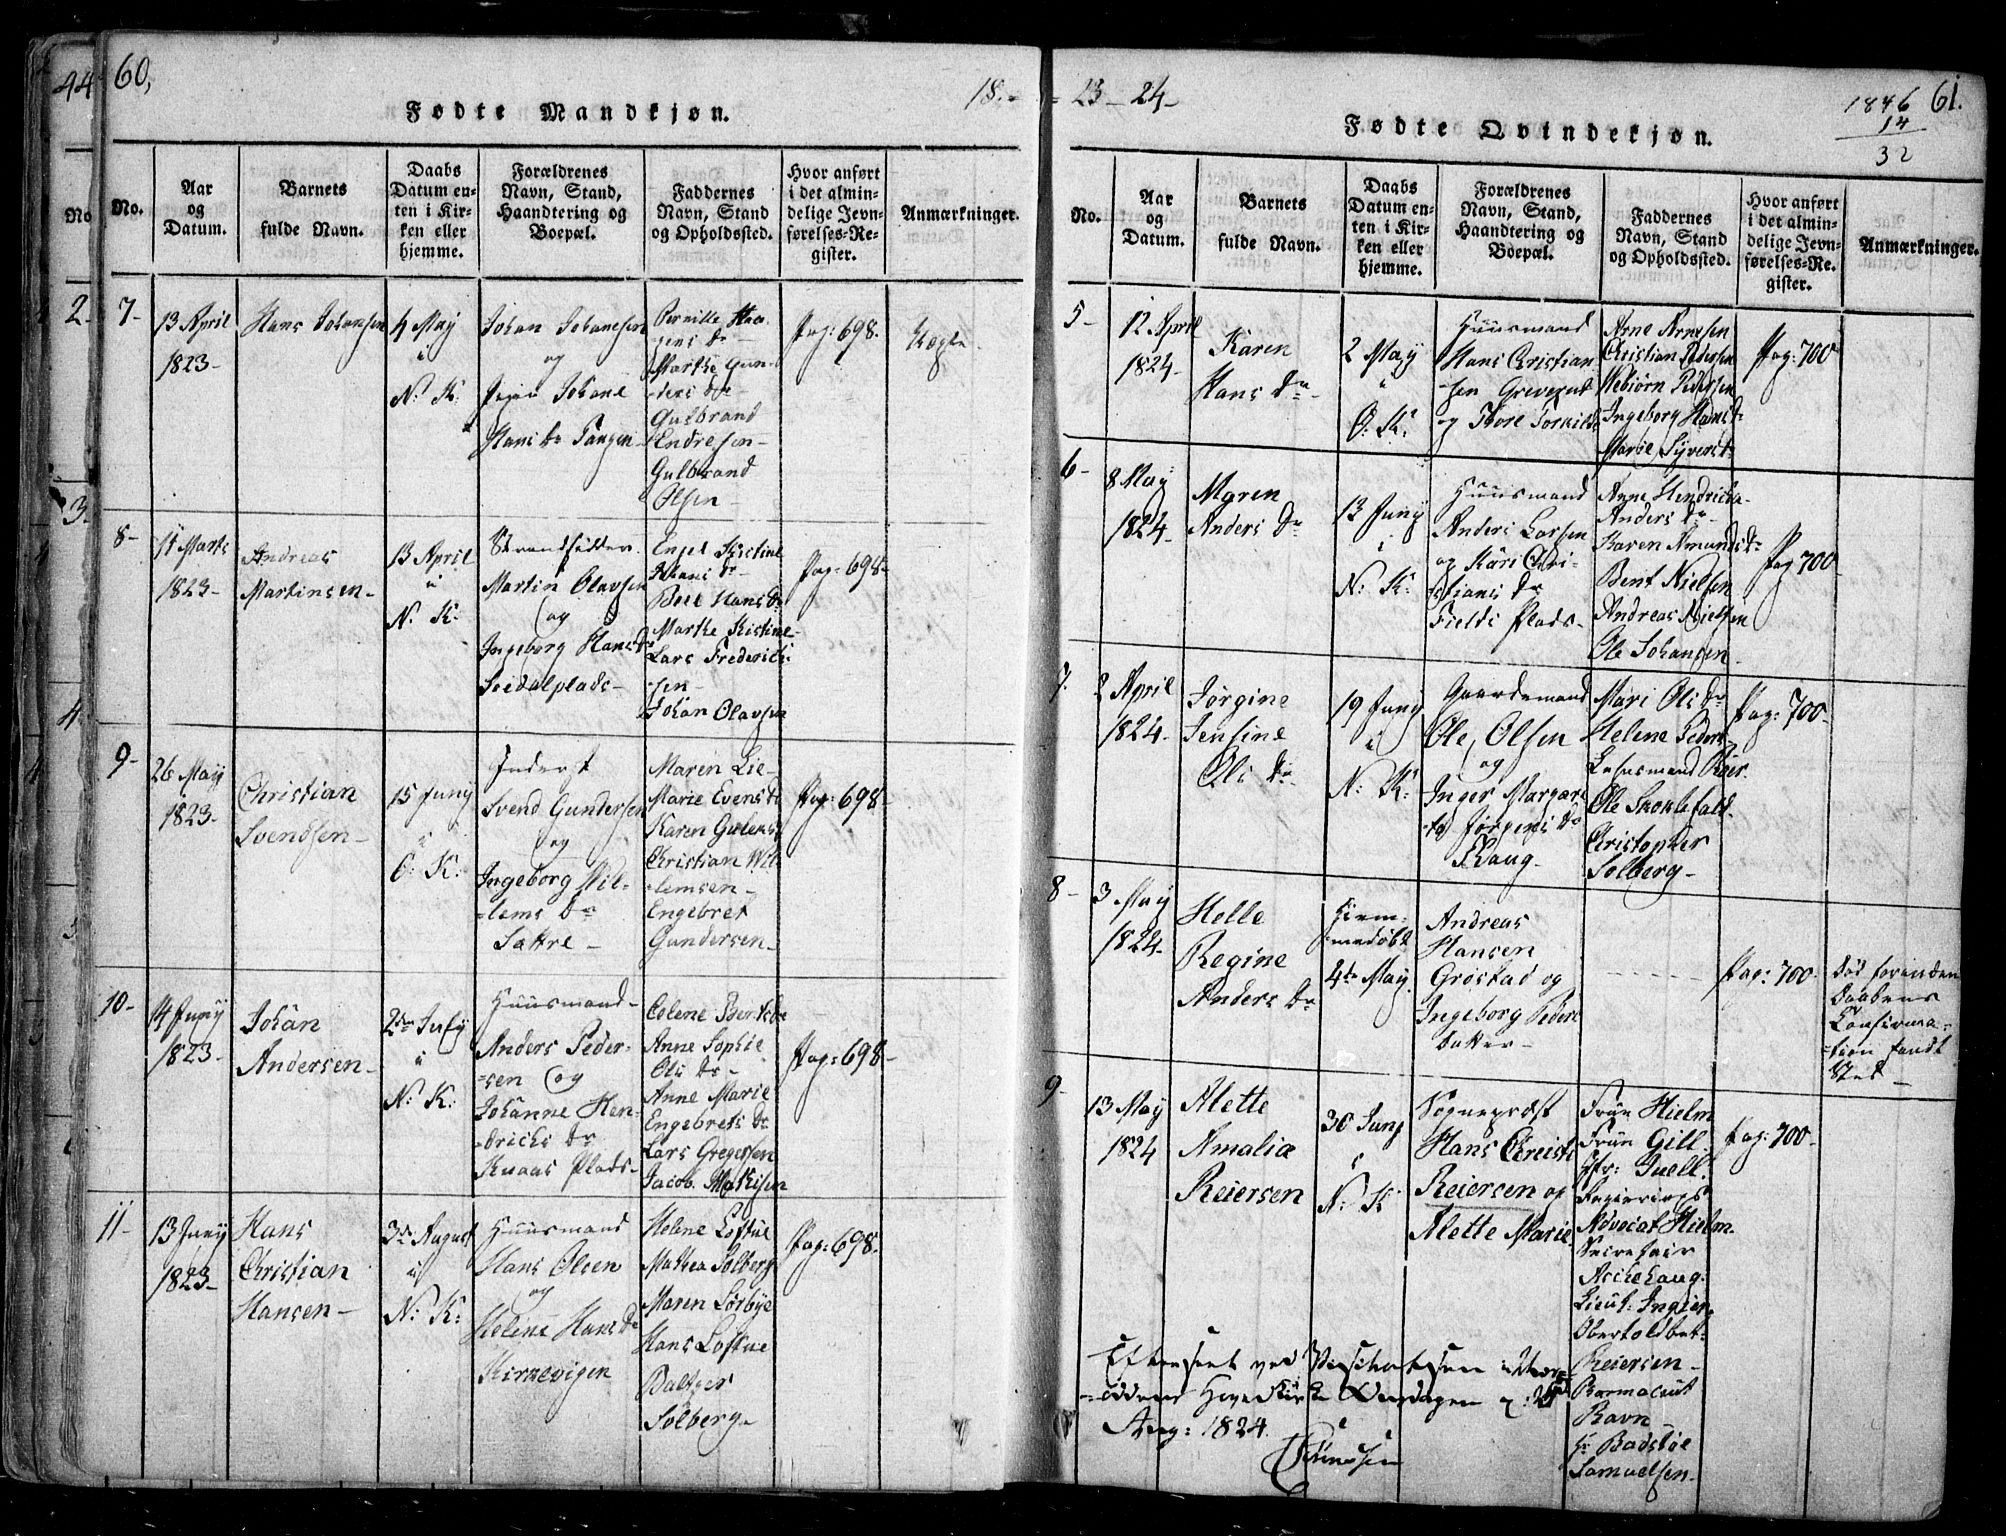 60,
18.
Fødte Mandkjøn.
No.
Aar og Datum.
Barnets fulde Navn.
Daabs Datum enten i Kirken eller hjemme.
Forældrenes Navn, Stand, Haandtering og Boepæl.
Faddernes Navn, Stand og Opholdssted.
Hvor anført i det almindelige Jevnførelses-Register.
Anmærkninger.
7-
13 April
1823-
Hans Johansen
4 May
i
N. K:
Johan Johanesen
og
Johane
Hans Dr Tangen-
Pernille Haa-
gens Dr
Marthe Gun-
ders Dr
Gulbrand
Endresen-
Gulbrand
Olsen-
Pag: 698.
8-
11 Marts
1823-
Andreas
Martinsen-
13 April
i
N. K:
Strandsidder
Martin Olavsen
og
Ingeborg Hans Dr
Engel Kistine
Hans Dr
Hans Dr
Marthe Kistine-
Lars Frederich-
sen-
Johan Olavsen
Pag: 698-
9-
26 May
1823-
Christian
Svendsen-
15 Juny
i
O. K:
Inderst
Svend Gundersen
og
Ingeborg Wil-
lems Dr
Sattre-
Maren Lie-
Marie Evens Dr
Karen
Christian Wil-
lemsen-
Engebret
Gundersen-
Pag: 698-
10-
14 Juny
1823-
Johan
Andersen-
2den July
i
N. K:
Huusmand-
Anders Peder-
sen og
Johanne Hen-
drichs Dr
Knaas Plads-
Anne Sophie
Ols Dr-
Anne Marie
Engebrets Dr
Lars Gregersen
Jacob Mathisen
Pag: 698-
11-
13 Juny
1823-
Hans
Christian
Hansen-
3de August
i
N. K:
Huusmand
Hans Olsen
og
Helene Hans Dr
Kirkevigen
Helene Loftue
Mathea Solberg
Maren Sørbye
Hans Loftue
Baltzer
Solberg-
Pag: 698-
23-24-
1846
14
32
61.
Fødte Qvindekjøn.
No.
Aar og Datum.
Barnets fulde Navn.
Daabs Datum enten i Kirken eller hjemme.
Forældrenes Navn, Stand, Haandtering og Boepæl.
Faddernes Navn, Stand og Opholdssted.
Hvor anført i det almindelige Jevnførelses-Register.
Anmærkninger.
5-
12 April
1824-
Karen
Hans Dr-
2 May
O: K:
Huusmand
Hans Christian-
sen
og Thore
Arne Arnesen
Christian Pedersen
Pedersen
Ingeborg Hans Dr
Marie Syverts-
Pag: 700-
6-
8 May
1824-
Maren
Anders Dr
13 Juny
i
N. K:
Huusmand
Anders Larsen
og Kari Chri-
stians Dr
Fields Plads-
Anne Hendricha
Anders Dr-
Karen Amunds Dr
Bent Nielsen
Andreas Nielsen
Ole Johansen-
Pag 700-
7.
2 April
1824-
Jørgine
Jensine
Ols Dr
19 Juny
i
N. K:
Gaardmand
Ole Olsen
og
Inger Margare-
the Jørgens Dr
Mari Ols Dr
Helene Peders-
Ole
Christopher
Solberg-
Pag: 700-
8-
3 May
1824-
Helle
Regine
Anders Dr
Hiem-
medøbt
4de May
Andreas
Hansen
Grøstad og
Ingeborg Peders
datter-
Pag: 700-
Død forinden
Daabens
Confirma-
tion fandt
Sted-
9-
13 May
1824
Alette
Amalia
Reiersen
30 Juny
i
N. K
Sogneprest
Hans Christi
Reiersen og
Alette Marie
Frue Hielm
Frue Gill
Juell.
Regierings
Advocat Hielm
Secretair
Lieut: Ingier
Reiersen-
Ravn-
Samuelsen-
Pag: 700-
Efterseet ved Visitatsen i Næs-
oddens Hoved Kirke
Aug: 1824.